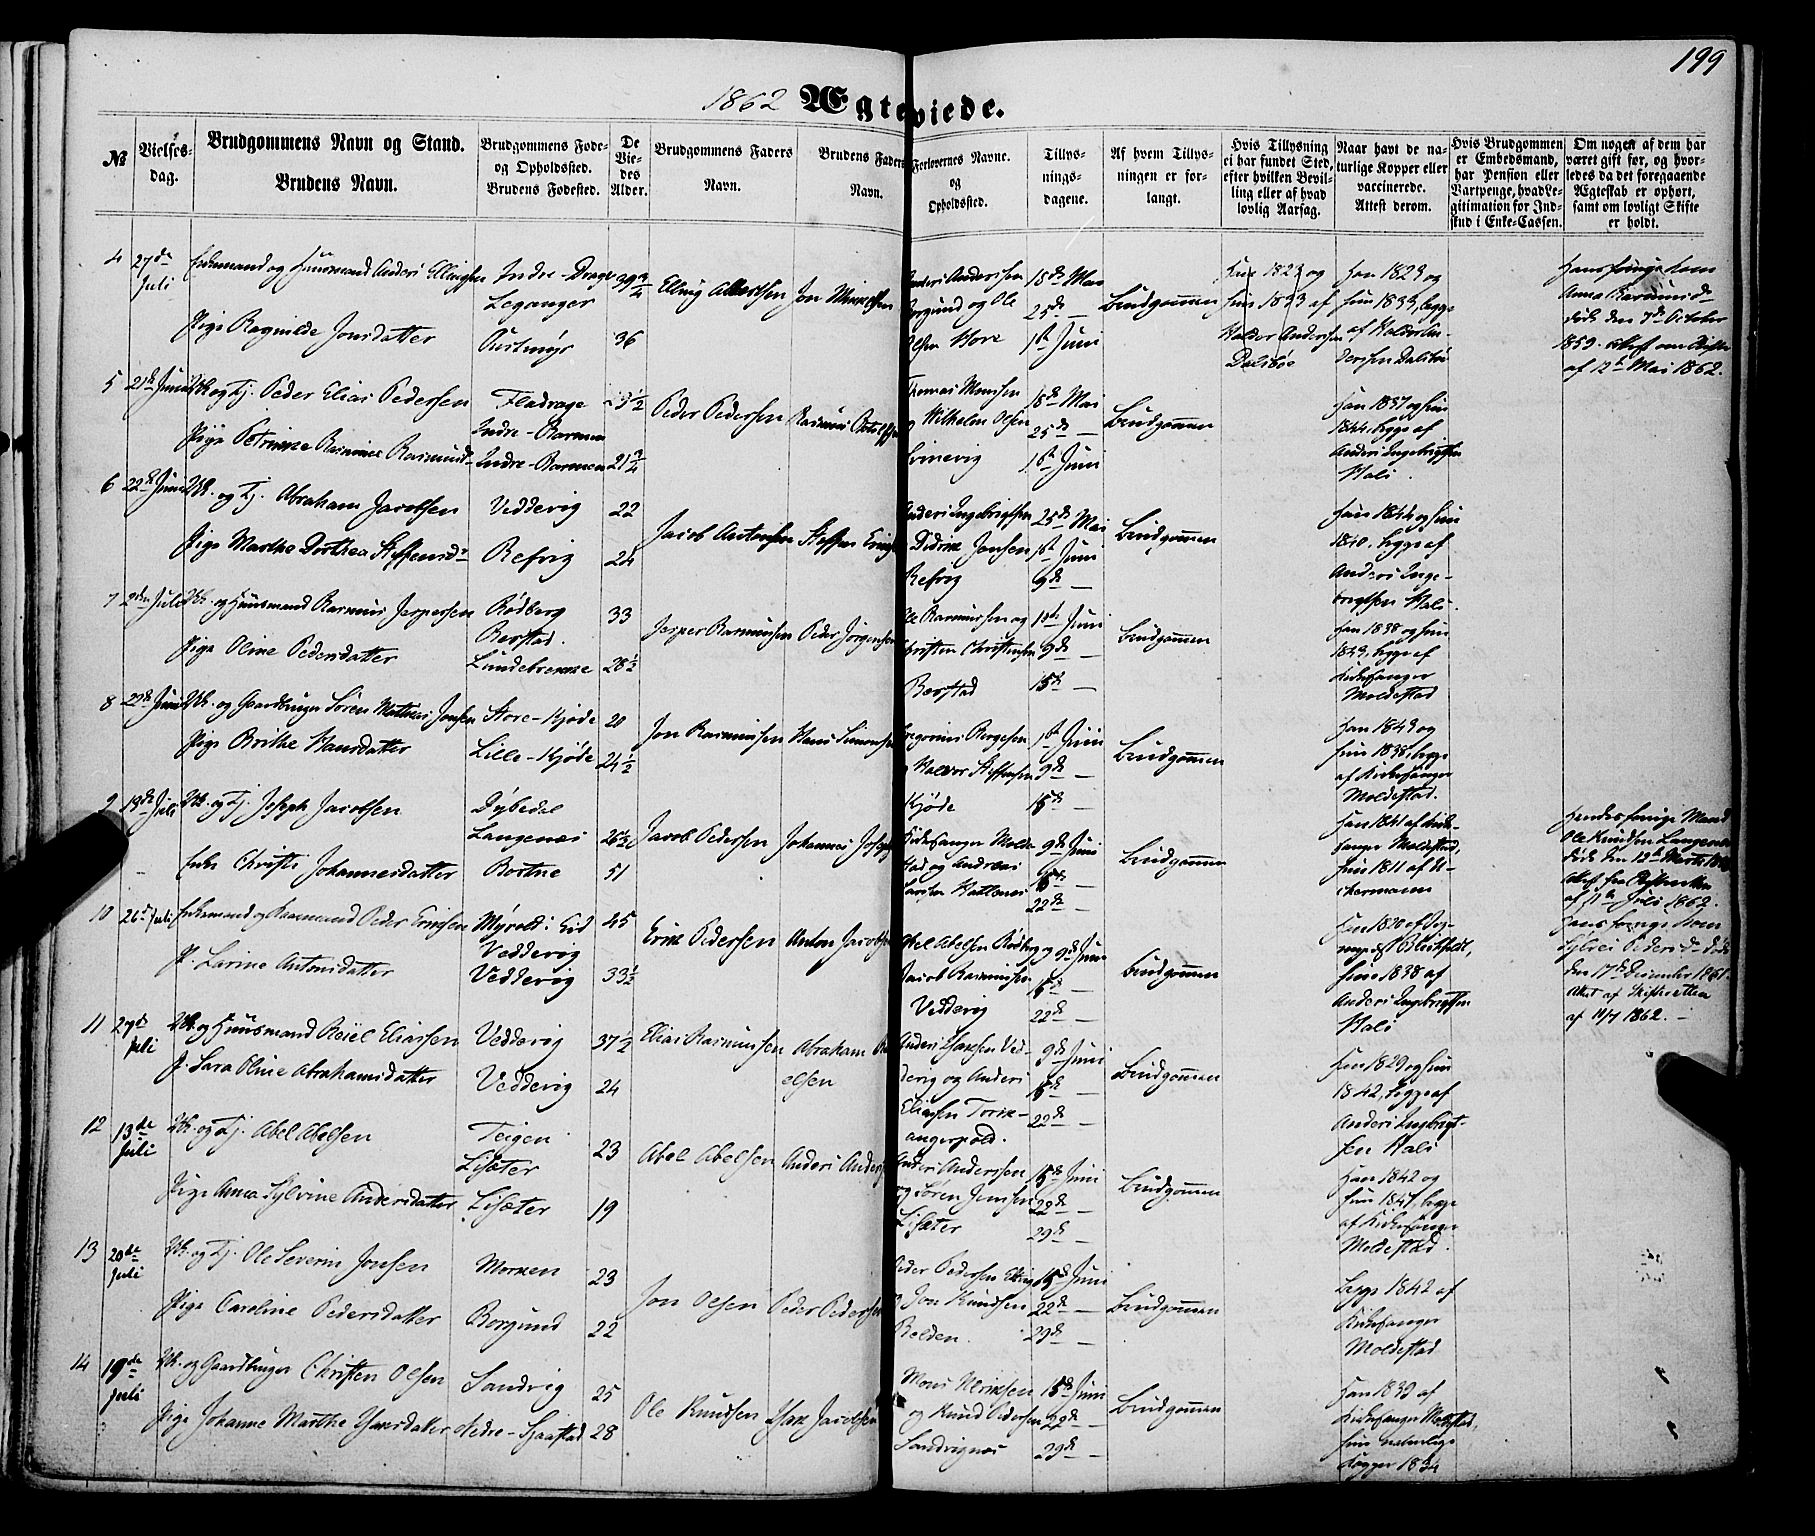 199
1862 Ægteviede.
№
Vielses-
dag.
Brudgommens Navn og Stand.
Brudens Navn.
Brudgommens Føde-
og Opholdssted.
Brudens Fødested.
De
Vie-
des
Alder.
Brudgommens Faders
Navn.
Brudens Faders
Navn.
Forlovernes Navne.
og
Opholdssted.
Tillys-
nings-
dagene.
Af hvem Tillys-
ningen er for-
langt.
Hvis Tillysning
ei har fundet Sted,
efter hvilken Bevil-
ling eller af hvad
lovlig Aarsag.
Naar havt de na-
turlige Kopper eller
vaccinerede.
Attest derom.
Hvis Brudgommen
er Embedsmand,
har Pension eller
Vartpenge, hvad Le-
gitimation for Ind-
skud i Enke-Cassen.
Om nogen af dem har
været gift før, og hvor-
ledes da det foregaaende
Ægteskab er ophørt,
samt om lovligt Skifte
er holdt.
4
27de
Juli
Enkemand og Huusmand Anders Ellingsen
Pige Ragnilde Jonsdatter
Indre-Drage
Leganger
39 3/4
36
Elling Albertsen
Jon Mikkelsen
Borgund og Ole
Olsen Hove
18de Mai
25de —
1ste Juni
Brudgommen
Han 1823 og
Hun 1833 af
Halvor Andersen
Dalsbøe
Han 1823 og
Hun 1833, begge
af Halvor An-
dersen Dalsbø
Hans forrige Kone
Anna Rasmusdr
døde den 7de October
1859. Attest om Skifte
af 12te Mai 1862.
5
21de Juni
Uk og Tj. Peder Elias Pedersen
Pige Petrikke Rasmine Rasmusd-
Fladrage
Indre-Barmen
Indre-Barmen
21 3/4
Peder Pedersen
Thomas Monssen
Wilhelm Olsen
18de Mai
25de —
1ste Juni
Brudgommen
Han 1837 og hun
1844, begge af
Anders Ingebrigtsen
Hals.
6
22de Juni
Uk. og Tj. Abraham Jacobsen
Pige Marthe Dorthea Steffensdr
Vedderig
Refvig
22
24
Jacob Antonsen
Anders Ingebrigtsen
Didrik Jonsen
Refvig
25de Mai
1ste Juni
9de —
Brudgommen
Han 1844 og hun
1840, begge af
Anders Inge-
brigtsen Hals.
7
2den Juli
Uk. og Huusmand Rasmus Jespersen
Pige Oline Pedersdatter
Rødberg
Berstad.
Lundebrekke
33
28 1/2
Jesper Rasmussen
Peder Jørgensen
Ole Rasmussen og
Christen Christensen
Berstad
1ste Juni
9de —
15de —
Brudgommen
Han 1838 og hun
1843, begge af
Kirkesanger
Moldestad
8
22de Juni
Uk. og Gaardbruger Søren Mathias Jonsen
Pige Brithe Hansdatter
Store-Kjøde
Lille-Kjøde
20
24 1/2
Jon Rasmussen
Hans Simonsen
Gregorius Borgesen
Halvor Steffensen
Kjøde
1ste Juni
9de —
15de —
Brudgommen
Han 1843 og
Hun 1838, begge
af Kirkesanger
Moldestad.
9
13de
Juli
Uk. og Tj. Joseph Jacobsen
Enke Christi Johannesdatter
Dybedal
Langenæs
Bortne
26 1/2
51
Jacob Pedersen
Johannes Joseph
Kirkesanger Molde-
stad og Andreas
9de Juni
15de
22de —
Brudgommen
Han 1841 af Kirke-
sanger Moldestad,
Hun 1811 af
Hendes forrige Mand
Ole Knudsen Langenæs
døde den 12te Marts
Attest fra Skifteretten
af 11te Juli 1862.
10
26de Juli
Enkemand og Huusmand Peder Eriksen
P. Larine Antonsdatter
Myrold i Eid
Vedderig
Vedderig
45
33 1/2
Erik Pedersen
Anton Jacobsen
Abel Abelsen Rødberg og
Jacob Rasmussen
Vedderig
9de Juni
15de
22de —
Brudgommen
Hun 1838 af
Anders Ingebrigtsen
Hals
Hans forrige Kone
Sylvei Pedersdr døde
den 17de December 1861.
Attest af Skifteretten
af 11/7 1862. —
11
27de
Juli
Uk. og Huusmand Reiel Eliassen
P. Sara Oline Abrahamsdatter
Vedderig
Vedderig
37 1/2
24
Elias Rasmussen
Abraham
elsen
Anders Isaksen Ved-
derig og Anders
Eliassen Torsk-
angerpold.
9de Juni
15de
22de —
Brudgommen
Han 1829 og hun
1842, begge af
Anders Ingebrigt-
sen Hals
12
13de
Juli
Uk. og Tj. Abel Abelsen
Pige Anna Sylvine Andersdatter
Teigen
Lisæter
Lisæter
23
19
Abel Abelsen
Anders Anders
Anders Anderssen
og Søren Jenssen
Lisæter
15de Juni
22de —
29de
Brudgommen
Han 1842 og
Hun 1847, begge
af Kirkesanger
Moldestad.
13
20de
Juli
Uk. og Tj. Ole Severin Jonsen
Pige Caroline Pedersdatter
Morken
Borgund
23
22
Jon Olsen
Peder Pedersen
Peder Pedersen
Jon Knudsen
Belden.
15de Juni
22de —
29de —
Brudgommen
Begge 1842 af
Kirkesanger
Moldestad
14
19de
Juli
Uk. og Gaardbruger Christen Olsen
Pige Johanne Marthe Isaksdatter
Sandvig
Nedre-Sjaastad
25
28
Ole Knudsen
Isak Jacobsen
Mons Olriksen
og Knud Pedersen
Sandvignæs
15de Juni
22de —
29de —
Brudgommen
Han 1839 af
Kirkesanger Moldestad,
Hun naturlige
Kopper 1834